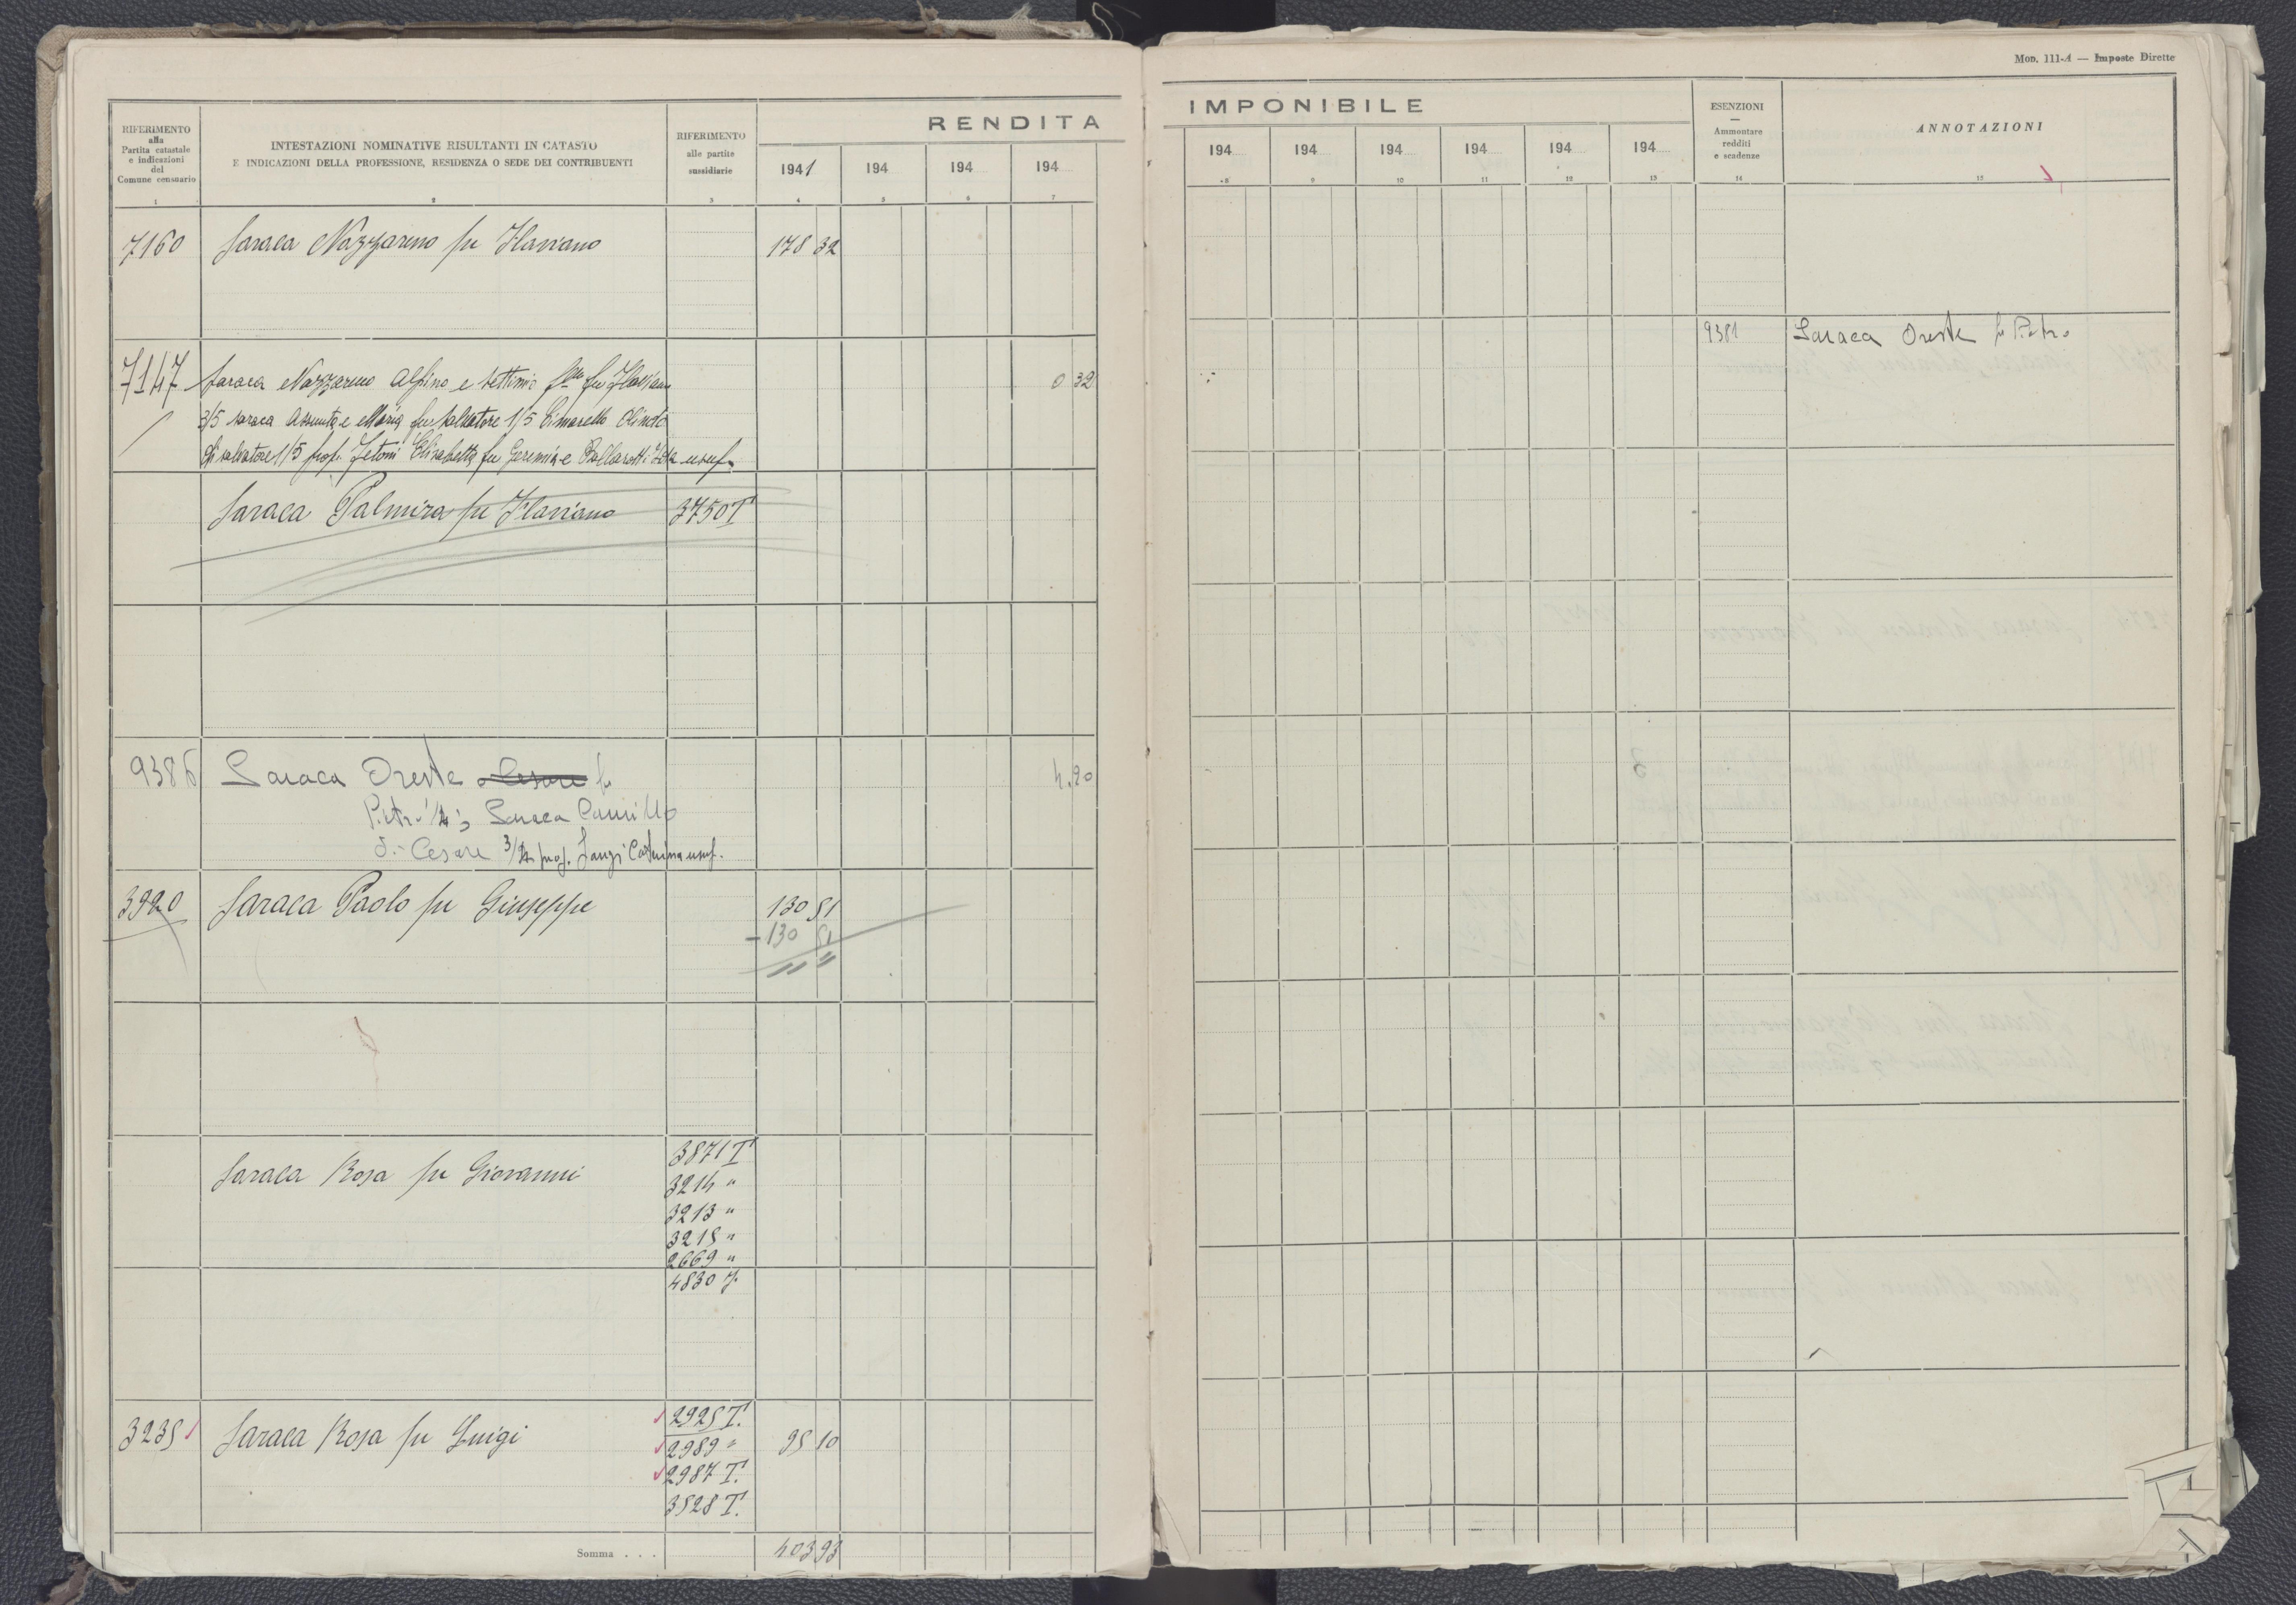 Mod. 111-A — Imposte Dirette
RENDITA IMPONIBILE
RIFERIMENTO
alla
Partita catastale
e indicazioni
del
Comune censuario
INTESTAZIONI NOMINATIVE RISULTANTI IN CATASTO
E INDICAZIONI DELLA PROFESSIONE, RESIDENZA O SEDE DEI CONTRIBUENTI
RIFERIMENTO
alle partite
sussidiarie
1941 194 194 194
194 194 194 194 194 194
ESENZIONI
—
Ammontare
redditi
e scadenze
ANNOTAZIONI
1 2 3 4 5 6 7 8 9 10 11 12 13 14 15
7160 Saraca Nazzareno fu Flaviano 178 32
9381 Saraca Oreste fu Pietro
7147 Saraca Nazzareno Alfino e Settimio fu Flaviano 0 32
3/5 Saraca Assunta e Maria fu Salvatore 1/5 Cimarelli
di Salvatore 1/5 prop. Elisabetta fu Geremia e usuf.
Saraca Palmira fu Flaviano 3750 T
9386 Saraca Oreste Cesare fu 4.20
Pietro 1/4; Saraca Camillo
di Cesare 3/4 prop. Caterina usuf.
3920 Saraca Paolo fu Giuseppe 130 51
- 130 51
" "
Saraca Rosa fu Giovanni 3871 T
3214 "
3213 "
3215 "
2669 "
4830 T
3235 Saraca Rosa fu Luigi 2925 T.
2989 " 95 10
2987 T.
3528 T.
Somma . . . 403 93